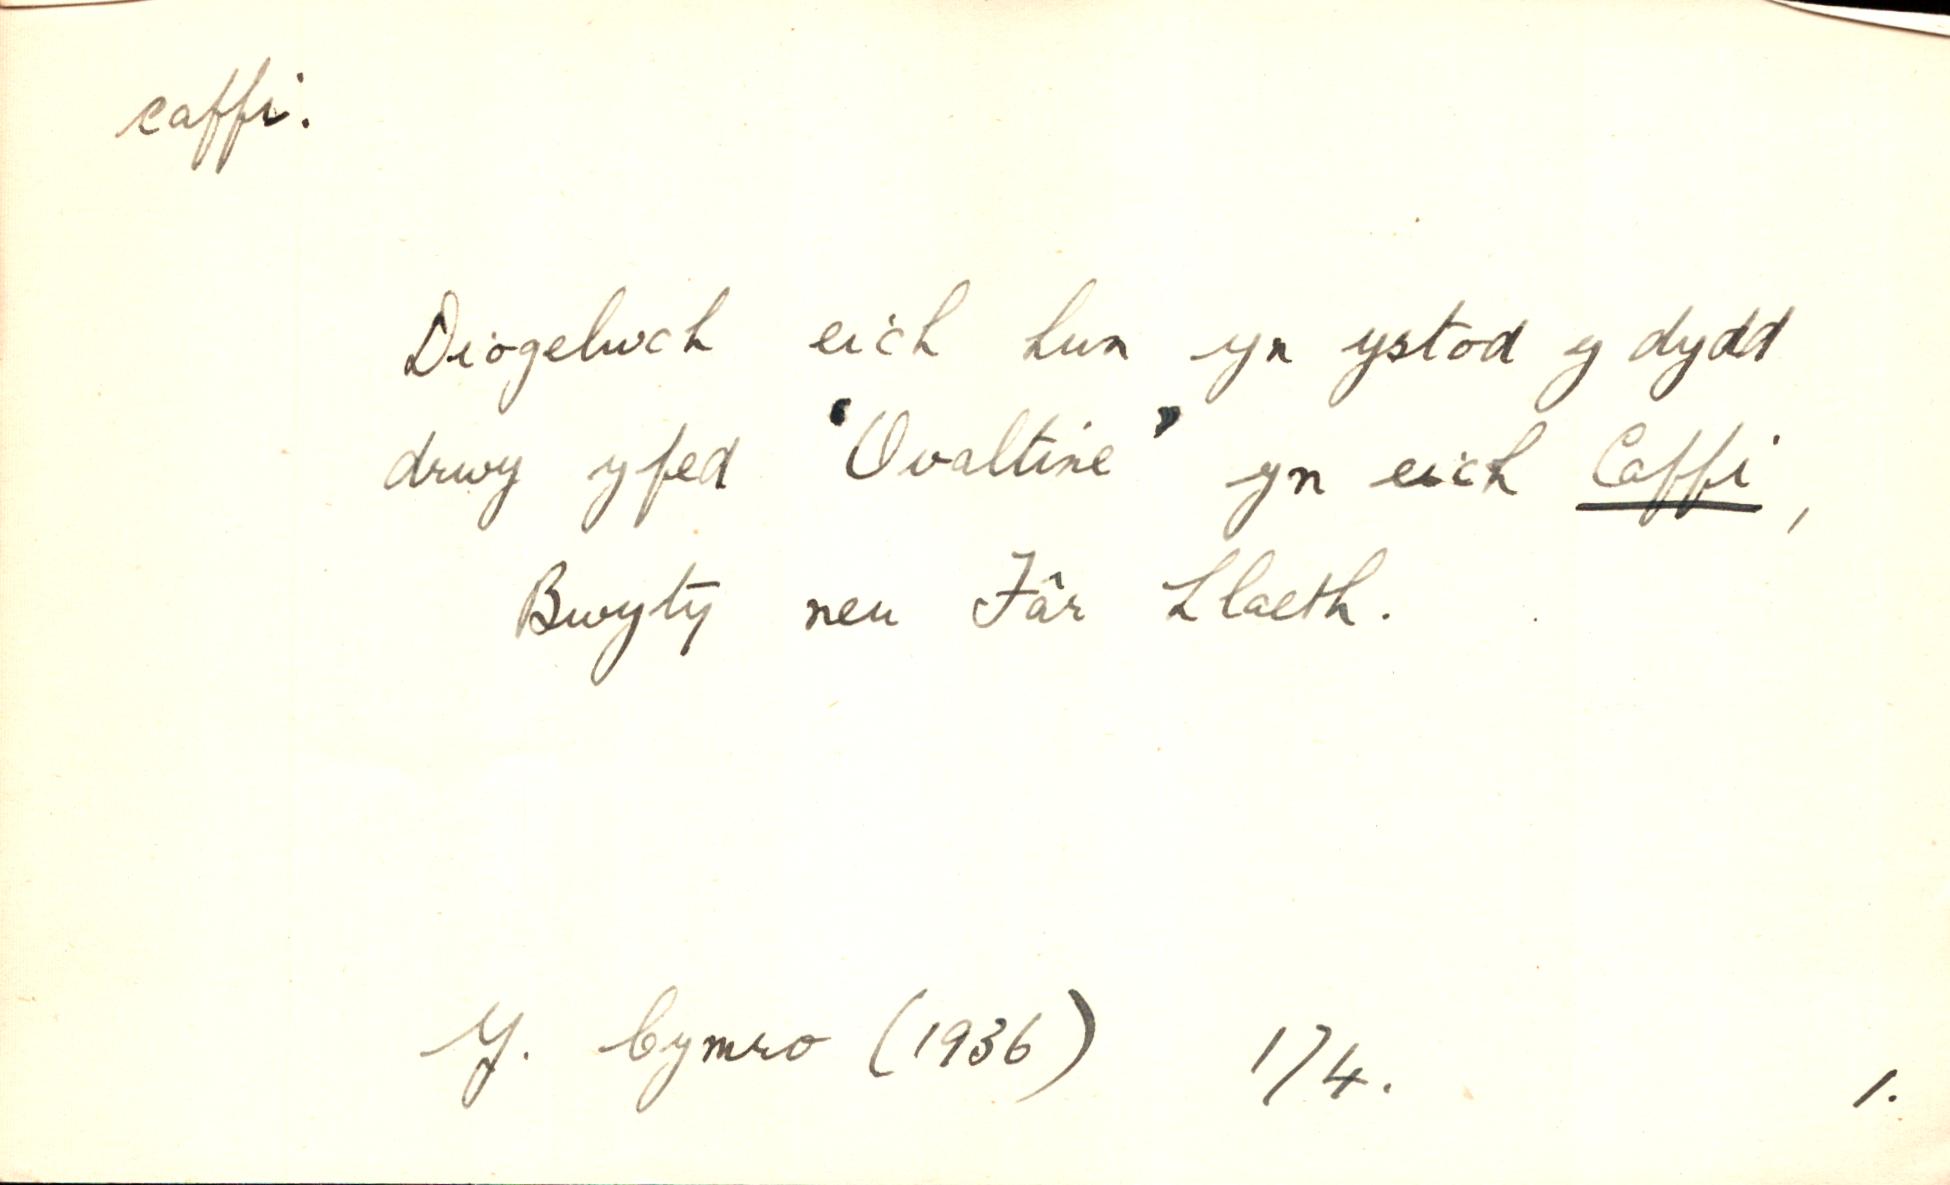 caffi.
Diogelwch eich hun yn ystod y dydd
drwy yfed "Ovaltine" yn eich Caffi,
Bwyty neu Fâr Llaeth.
Y. Cymro (1936) 174. 1.